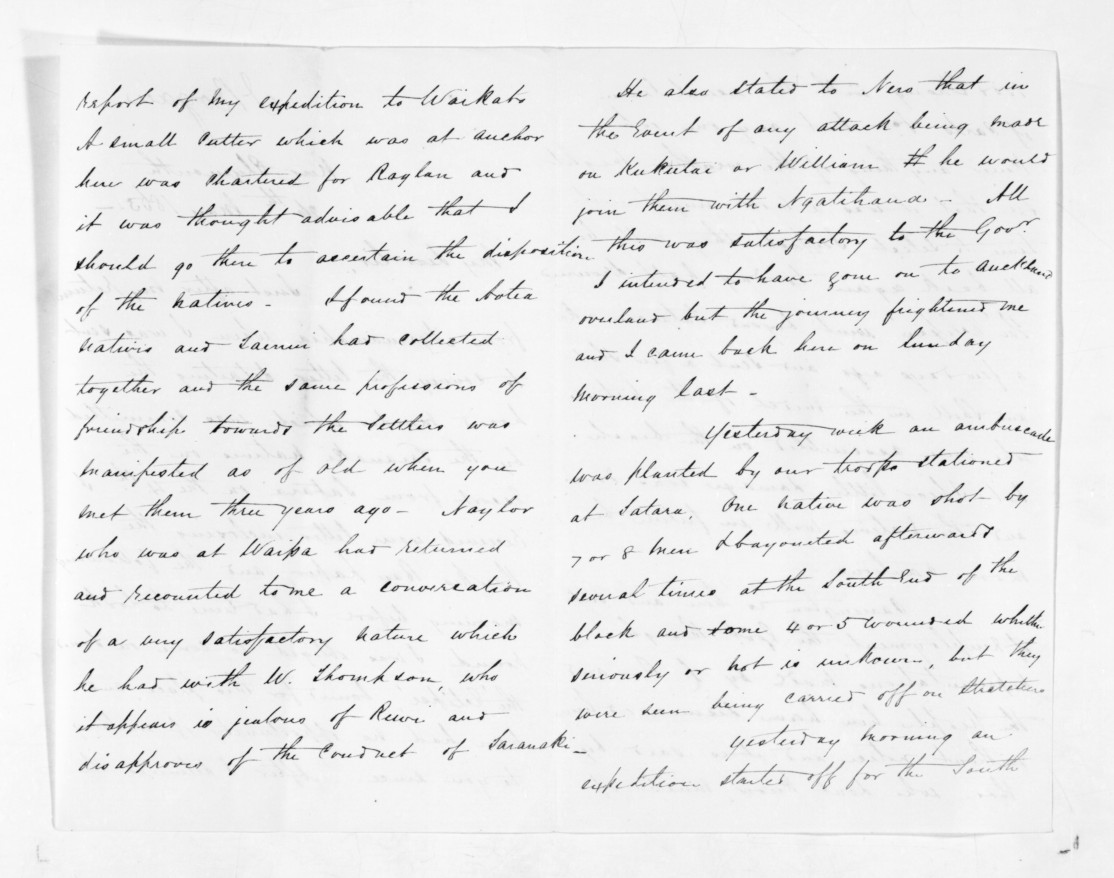 report of my expedition to Waikato
A small Cutter which was at anchor
here was chartered for Raglan and
it was thought advisable that I
should go there to ascertain the disposition
of the natives - I found the Aotea
natives and Taenui had collected
together and the same professions of
friendship towards the Settlers was
manifested as of old when you
met them three years ago - Naylor
who was at Waipa had returned
and recounted to me a conversation
of a very satisfactory nature which
he had with W. Thompson, who
it appears is jealous of Rewi and
disapproves of the Conduct of Taranaki -
He also stated to Nero that in
the Event of any attack being made
on Kukutai or William he would
join them with Ngatihaua - All
this was satisfactory to the Govr
I intended to have gone on to Auckland
overland but the journey frightened me
and I came back here on Sunday
morning last -
Yesterday week an ambuscade
was planted by our troops stationed
at Tatara. One native was shot by
7 or 8 men & bayoneted afterwards
several times at the South End of the
block and some 4 or 5 wounded whether
seriously or not is unkown, but they
were seen being carried off on stretchers
Yesterday morning an
expedition started off for the South